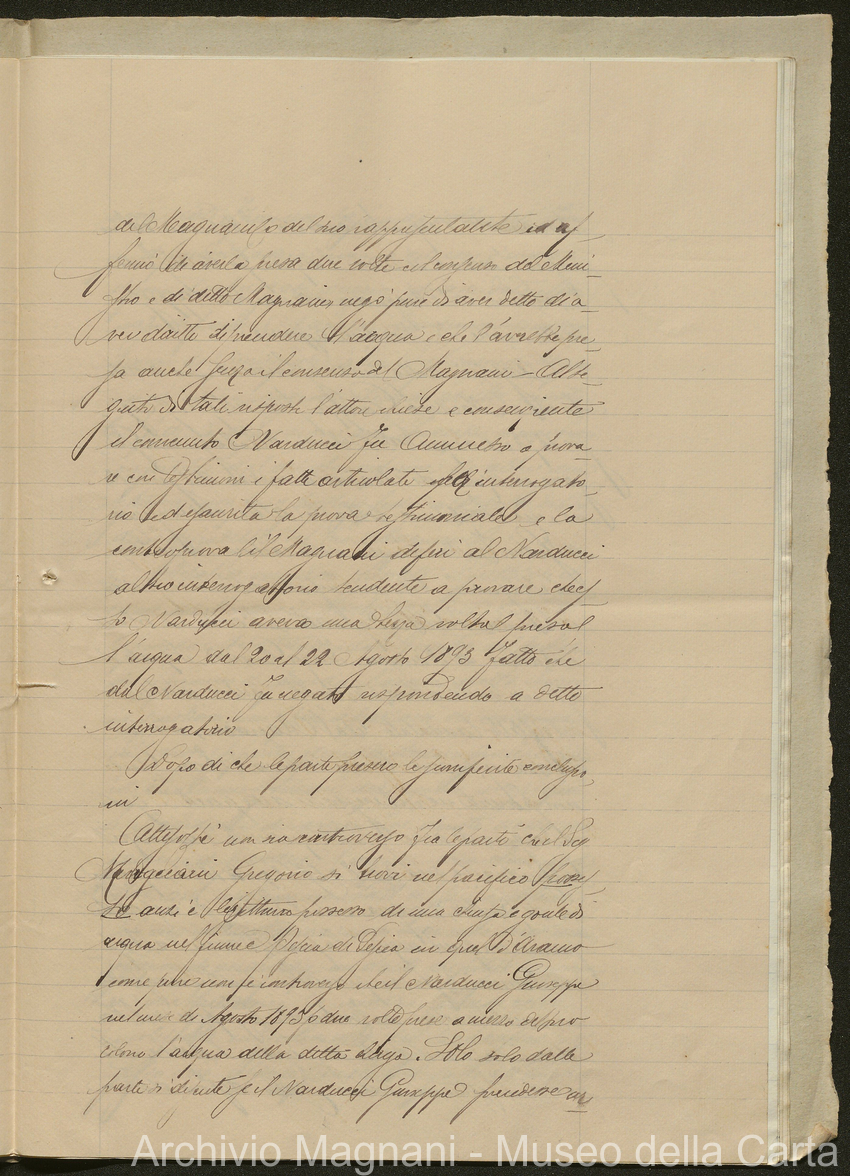 del Magnani o del suo rappresentante ed af-
fermò di averla presa due volte col consenso del Mini-
stro e di detto Magnani negò pure di aver detto di a-
ver diritto di prendere l'acqua e che l'avrebbe pre-
sa anche senza il consenso del Magnani - A se-
guito di tali risposte l'attore chiese e consenziente
il convenuto Narducci fu ammesso a prova-
re con testimoni i fatti articolati nell'interrogato-
rio ed esaurita la prova testimoniale e la
controprova il Magnani deferì al Narducci
altro interrogatorio tendente a provare che es-
so Narducci aveva una terza volta presa
l'acqua dal 20 al 22 Agosto 1893 fatto che
dal Narducci fu negato rispondendo a detto
interrogatorio
Dopo di che le parti presero le conclusio-
ni
Attesochè non sia controverso fra le parti che il Sig
Magnani Gregorio si trovi nel pacifico posses-
so anzi è legittimo possesso di una chiusa e gora di
acqua nel fiume Pescia di Pescia in quel d'Aramo
come pure non si controverte che il Narducci Giuseppe
nel mese di Agosto 1893 due volte prese a mezzo del suo
colono l'acqua della detta chiusa. Solo solo dalle
parti si discute se il Narducci Giuseppe prendesse an
Archivio Magnani - Museo della Carta